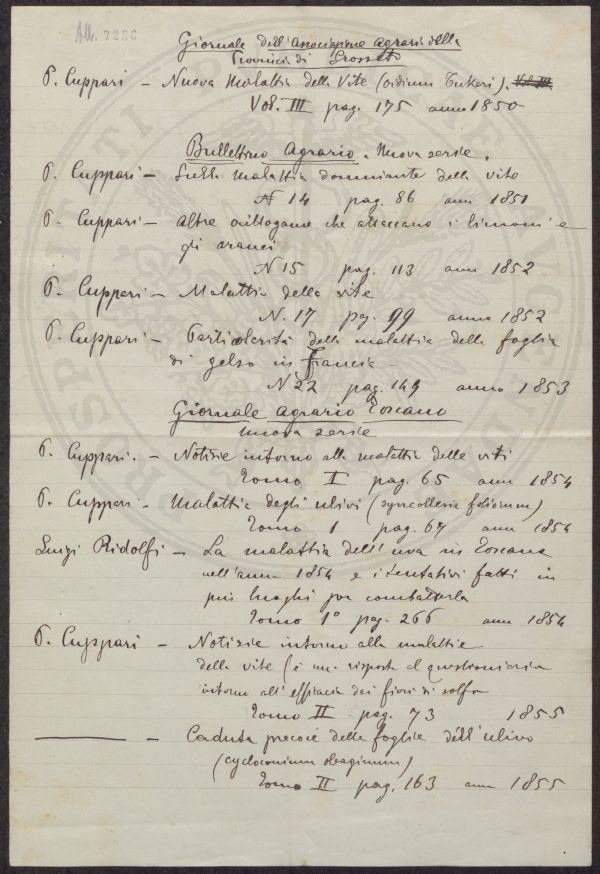 Alb. 2286
Giornale dell'Associazione agraria della
Provincia di Grosseto
P. Cuppari — Nuova Malattia della Vite (oidium Tukeri).
Vol. III pag. 175 anno 1850
Bullettino Agrario. Nuova serie.
P. Cuppari — Sulla malattia dominante della vite
N 14 pag. 86 ann 1851
P. Cuppari — Altre crittogame che attaccano i limoni e
gli aranci
N 15 pag. 113 ann 1852
P. Cuppari — Malattia della vite
N. 17 pag. 99 anno 1852
P. Cuppari — Particolarità della malattia della foglia
di gelso in Francia —
N 22 pag. 149 anno 1853
Giornale agrario Toscano
nuova serie
P. Cuppari. — Notizie intorno alla malattia delle viti
Tomo I pag. 65 ann 1854
P. Cuppari — Malattia degli ulivi (
Tomo 1 pag. 67 ann 1854
Luigi Ridolfi — La malattia dell'uva in Toscana
nell'anno 1854 e i tentativi fatti in
più luoghi per combatterla
Tomo 1° pag. 266 ann 1854
P. Cuppari — Notizie intorno alla malattia
della vite ( risposta al questionario
intorno all'efficacia dei fiori di solfo
Tomo II pag. 73 1855
— Caduta precoce delle foglie dell'ulivo
(cycloconium oleaginum)
Tomo II pag. 163 ann 1855
PROSPERITATI